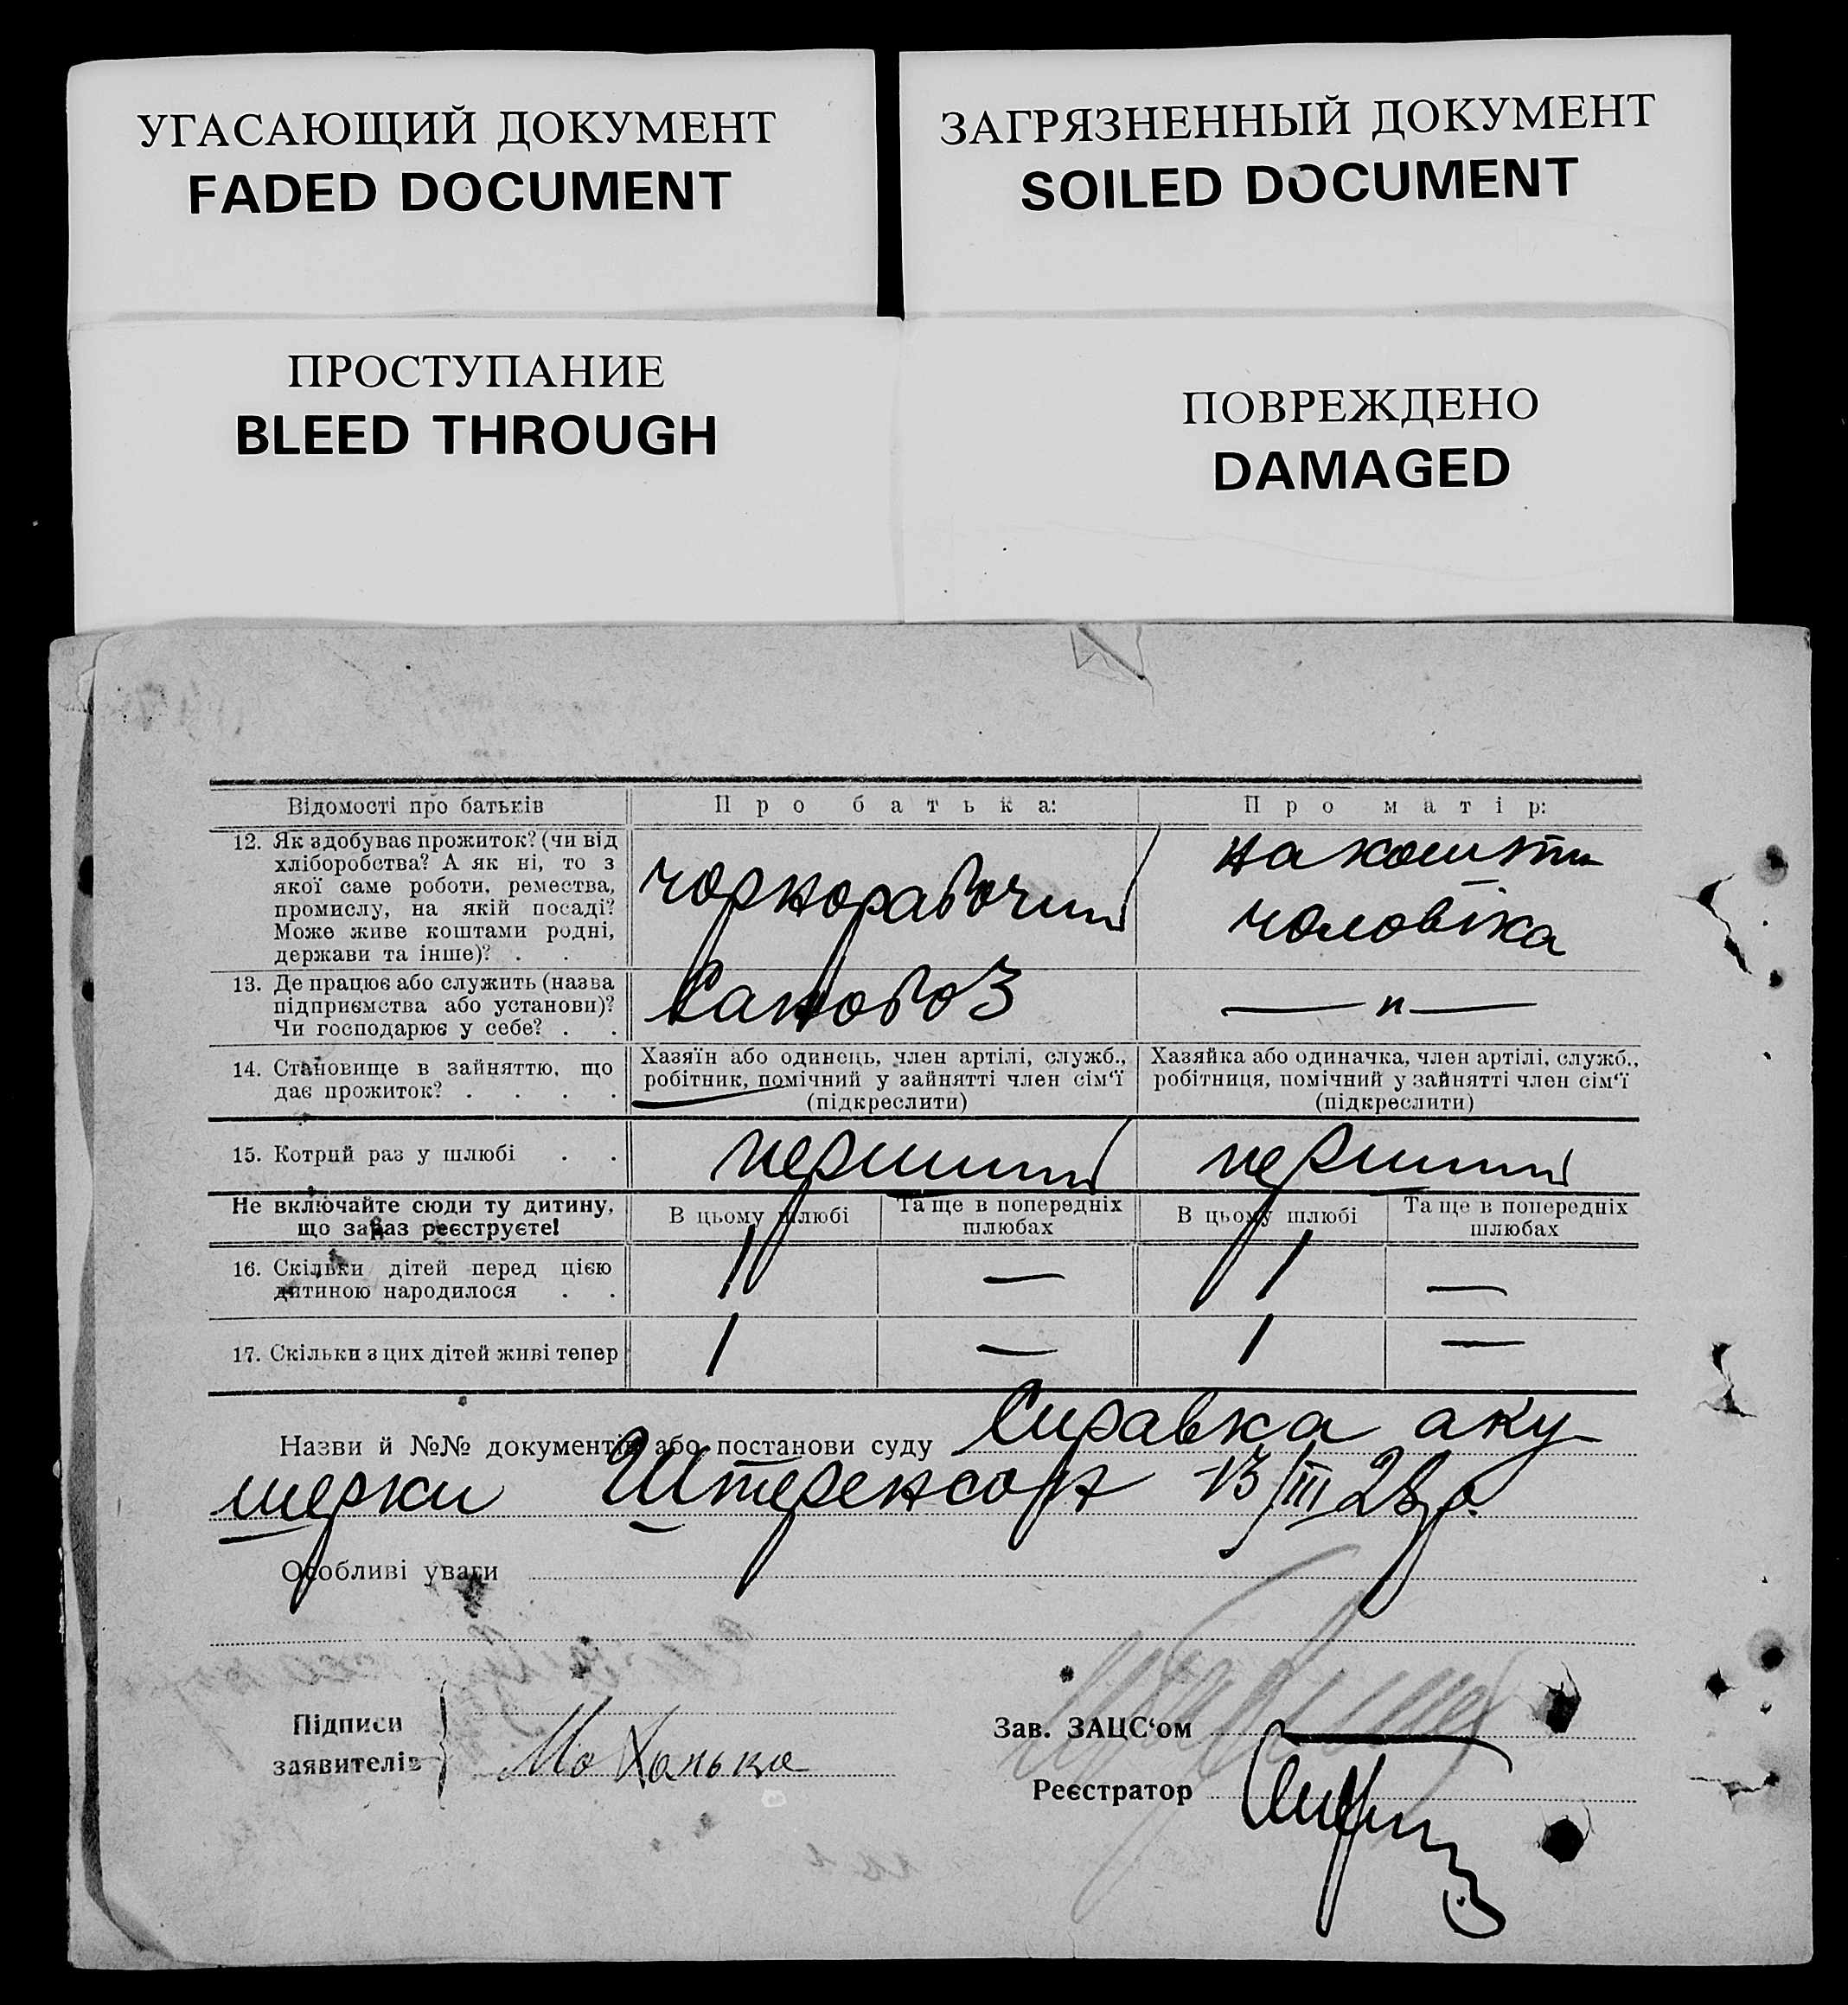 УГАСАЮЩИЙ ДОКУМЕНТ
FADED DOCUMENT
ЗАГРЯЗНЕННЫЙ ДОКУМЕНТ
SOILED DOCUMENT
ПРОСТУПАНИЕ
BLEED THROUGH
ПОВРЕЖДЕНО
DAMAGED
Відомості про батьків
Про батька:
Про матір:
12. Як здобуває прожиток? (чи від
хліборобства? А як ні, то з
якої саме роботи, ремества,
промислу, на якій посаді?
Може живе коштами родні,
держави та інше)? . .
чорнорабочий
на кошти
чоловіка
13. Де працює або служить (назва
підприємства або установи)?
Чи господарює у себе? . .
Санобоз
— п —
14. Становище в зайняттю, що
дає прожиток? . . . .
Хазяїн або одинець, член артілі, служб.,
робітник, помічний у зайнятті член сім‘ї
(підкреслити)
Хазяйка або одиначка, член артілі, служб.,
робітниця, помічний у зайнятті член сім‘ї
(підкреслити)
15. Котрий раз у шлюбі . .
перший
перший
Не включайте сюди ту дитину,
що зараз реєструєте!
В цьому шлюбі
Та ще в попередніх
шлюбах
В цьому шлюбі
Та ще в попередніх
шлюбах
16. Скільки дітей перед цією
дитиною народилося . .
1 — 1 —
17. Скільки з цих дітей живі тепер
1 — 1 —
Назви й №№ документів або постанови суду Справка аку-
шерки Штеренсон 13/III 28 р.
Особливі уваги
Підписи
заявителів
Зав. ЗАЦС‘ом
Реєстратор